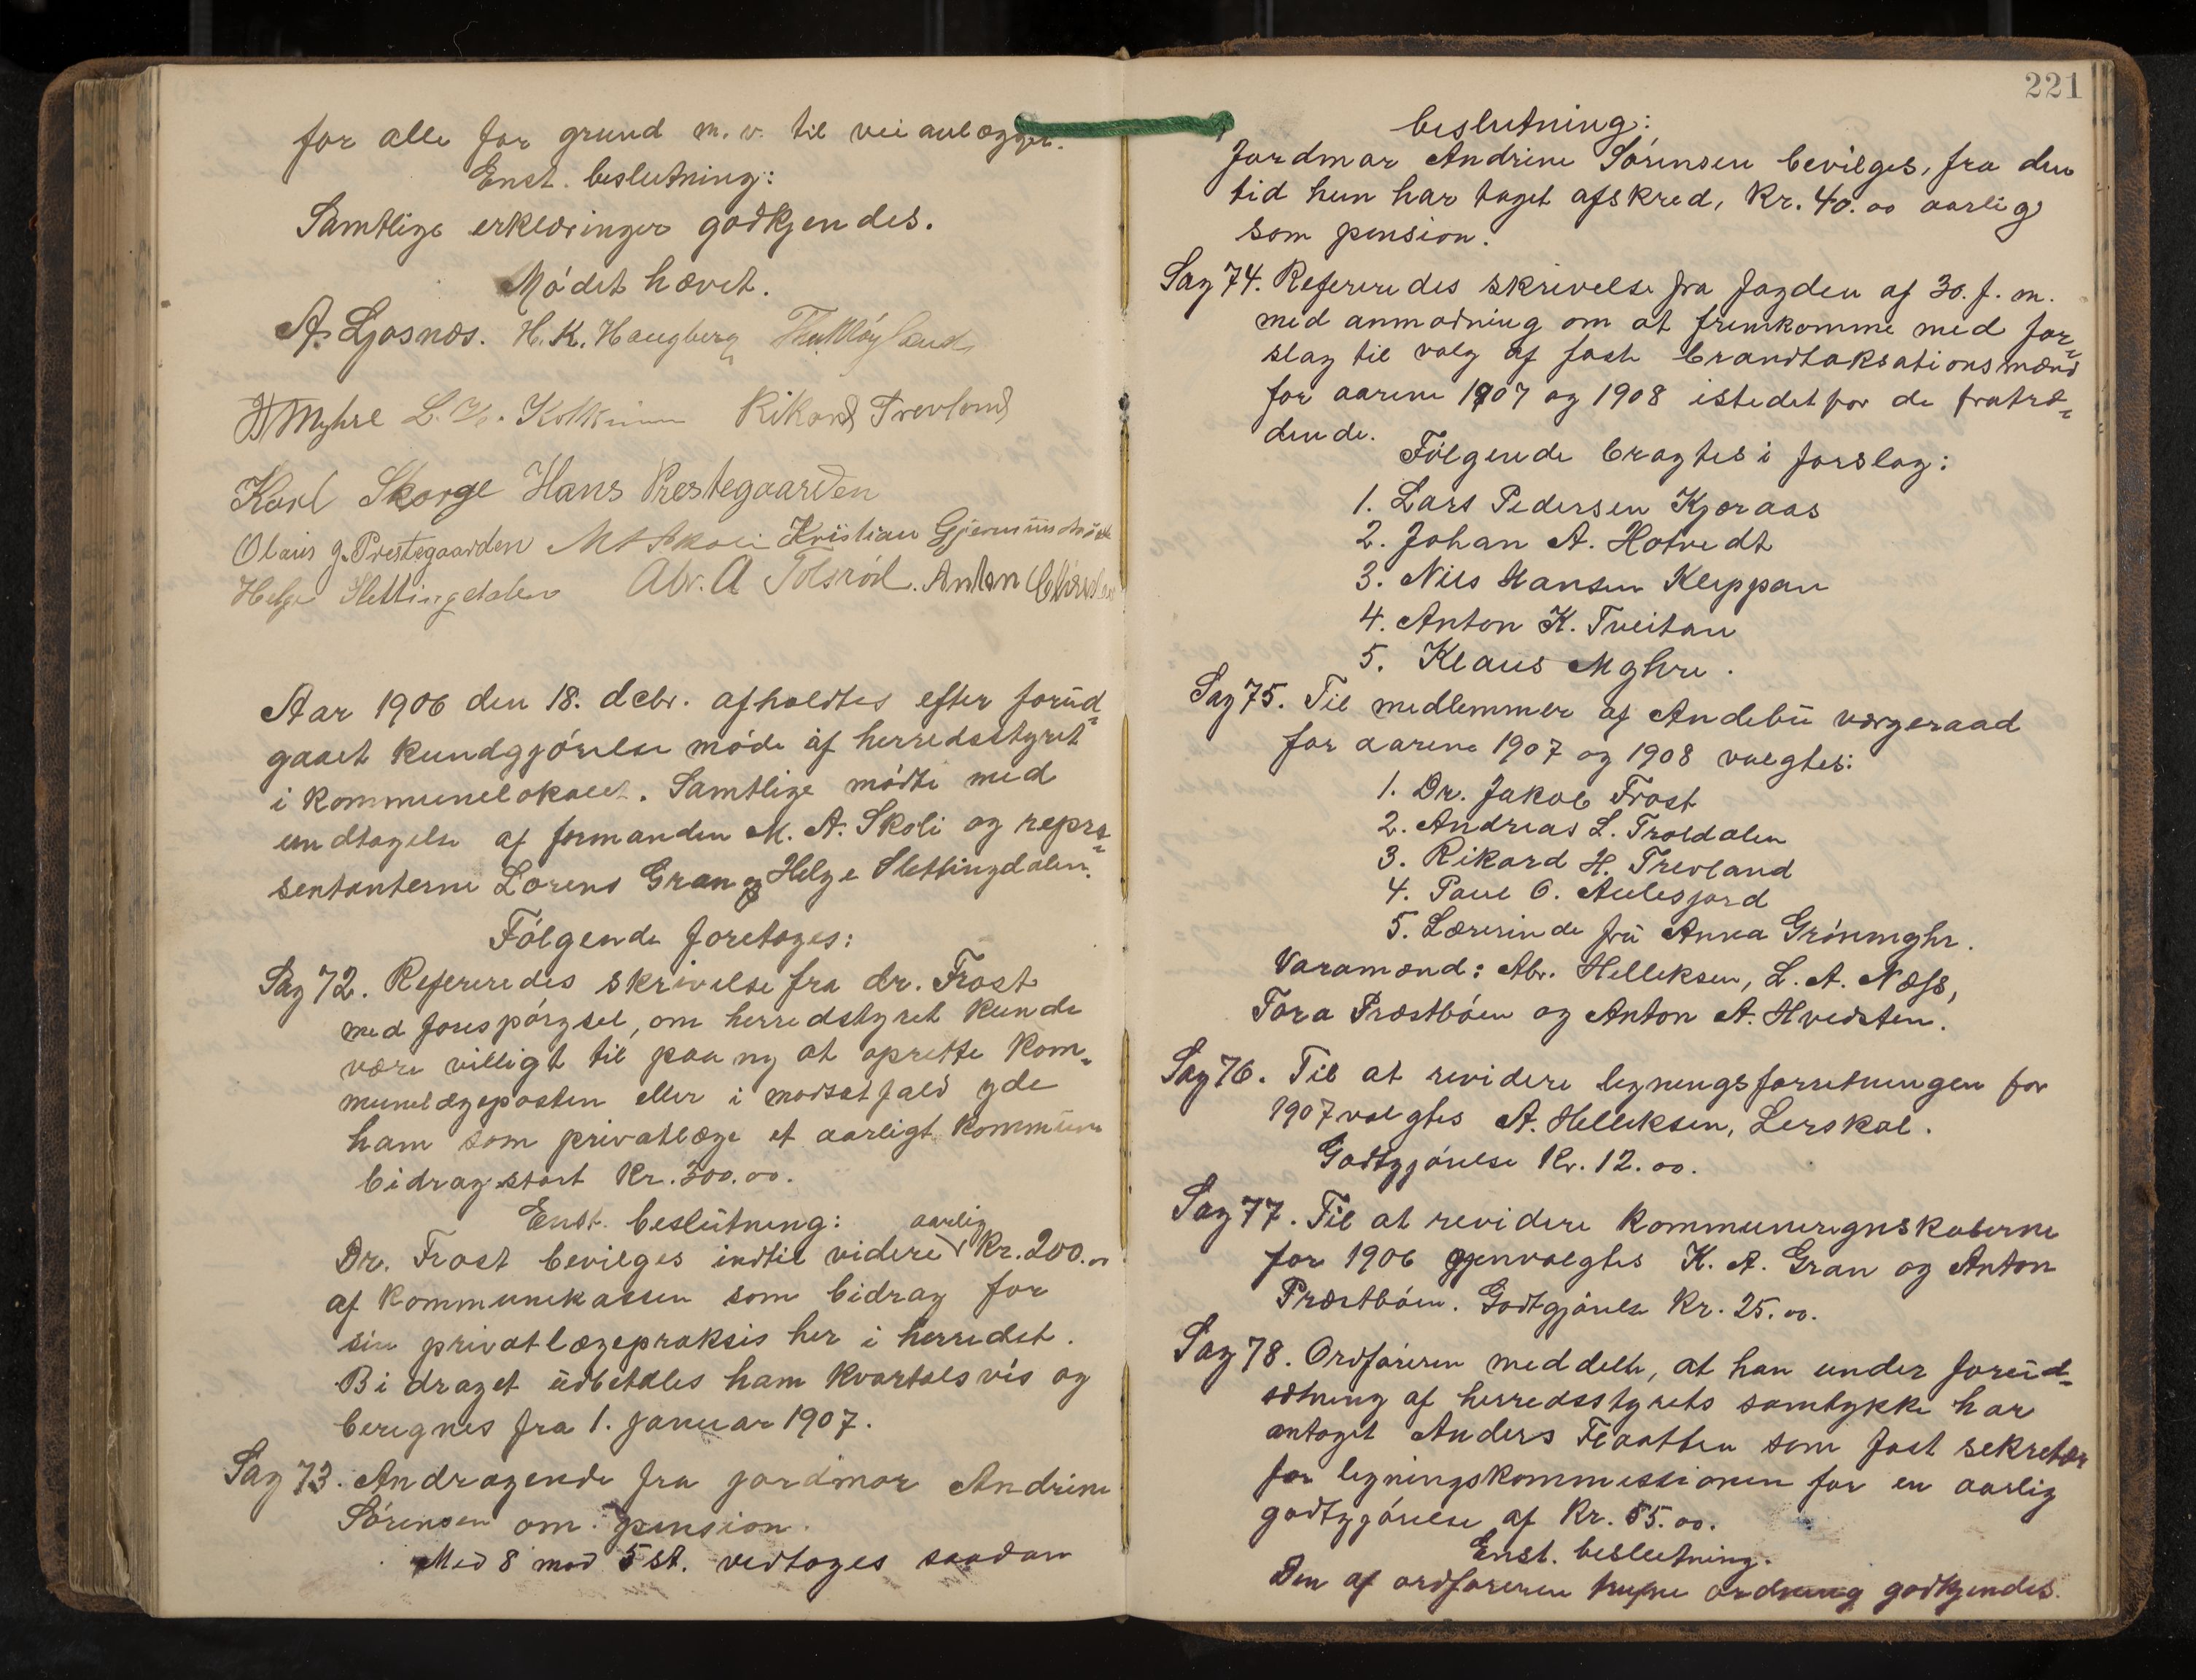 for alle for grund m. v. til veianlægget.
Enst. beslutning:
Samtlige erklæringer godkjendes.
Mødet hævet.
A. Ljosnæs. H. K. Haugberg
Myhre Rikard Trevland
Karl Skorge Hans Prestegaarden
Olaus J. Prestegaarden M A Skoli Kristian
Helge Slettingdalen Abr. A Tolsrød. Anton
Aar 1906 den 18. decbr. afholdtes efter forud-
gaaet kundgjørelse møde af herredsstyret
i kommunelokalet. Samtlige mødte med
undtagelse af formanden M. A. Skoli og repræ-
sentanterne Lorens Gran og Helge Slettingdalen.
Følgende foretoges:
Sag 72. Refereredes skrivelse fra dr. Frost
med forespørgsel, om herredstyret kunde
være villigt til paa ny at oprette kom-
munelægeposten eller i modsat fald yde
ham som privatlæge et aarligt kommune
bidrag stort kr. 300.00.
Enst. beslutning:
aarlig
Dr. Frost bevilges indtil videre kr. 200.00
af kommunekassen som bidrag for
sin privatlægepraksis her i herredet.
Bidraget udbetales ham kvartalsvis og
beregnes fra 1. januar 1907.
Sag 73. Andragende fra jordmor Andrine
Sørensen om pension.
Med 8 mod 5 st. vedtoges saadan
221
beslutning:
Jordmor Andrine Sørensen bevilges, fra den
tid hun har taget afsked, kr. 40.00 aarlig
som pension.
Sag 74. Refereredes skrivelse fra fogden af 30. f. m.
med anmodning om at fremkomme med for-
slag til valg af faste brandtaksationsmænd
for aarene 1907 og 1908 istedetfor de fratræ-
dende.
Følgende bragtes i forslag:
1. Lars Pedersen Kjæraas
2. Johan A. Hotvedt
3. Nils Hansen Kleppan
4. Anton K. Tveitan
5. Klaus Myhre.
Sag 75. Til medlemmer af Andebu værgeraad
for aarene 1907 og 1908 valgtes:
1. Dr. Jakob Frost
2. Andreas L. Troldalen
3. Rikard H. Trevland
4. Paul O. Aulesjord
5. Lærerinde fru Anna Grønmyhr.
Varamænd: Abr. Helliksen, L. A. Næss,
Tora Præstbøen og Anton A. Hvidsten.
Sag 76. Til at revidere ligningsforretningen for
1907 valgtes A. Helliksen, Lerskal.
Godtgjørelse kr. 12.00.
Sag 77. Til at revidere kommuneregnskaberne
for 1906 gjenvalgtes K. A. Gran og Anton
Præstbøen. Godtgjørelse kr. 25.00.
Sag 78. Ordføreren meddelte, at han under forud-
sætning af herredsstyrets samtykke har
antaget Anders Flaatten som fast sekretær
for ligningskommissionen for en aarlig
godtgjørelse af kr. 55.00.
Enst. beslutning.
Den af ordføreren trufne ordning godkjendes.